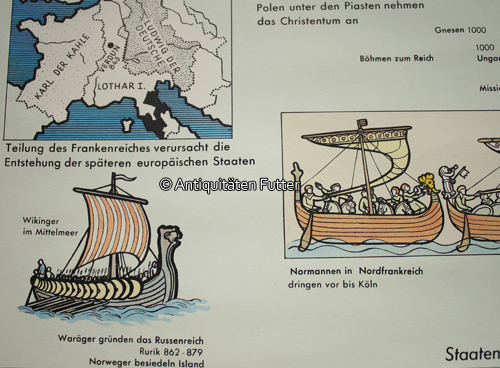 Polen unter den Piasten nehmen
das Christentum an
Gnesen 1000
1000
Böhmen zum Reich
KARL DER KAHLE
VERDUN
843
LUDWIG DER
DEUTSCHE
LOTHAR I.
Teilung des Frankenreiches verursacht die
Entstehung der späteren europäischen Staaten
© Antiquitäten Futter
Wikinger
im Mittelmeer
Normannen in Nordfrankreich
dringen vor bis Köln
Waräger gründen das Russenreich
Rurik 862 - 879
Norweger besiedeln Island
Staaten